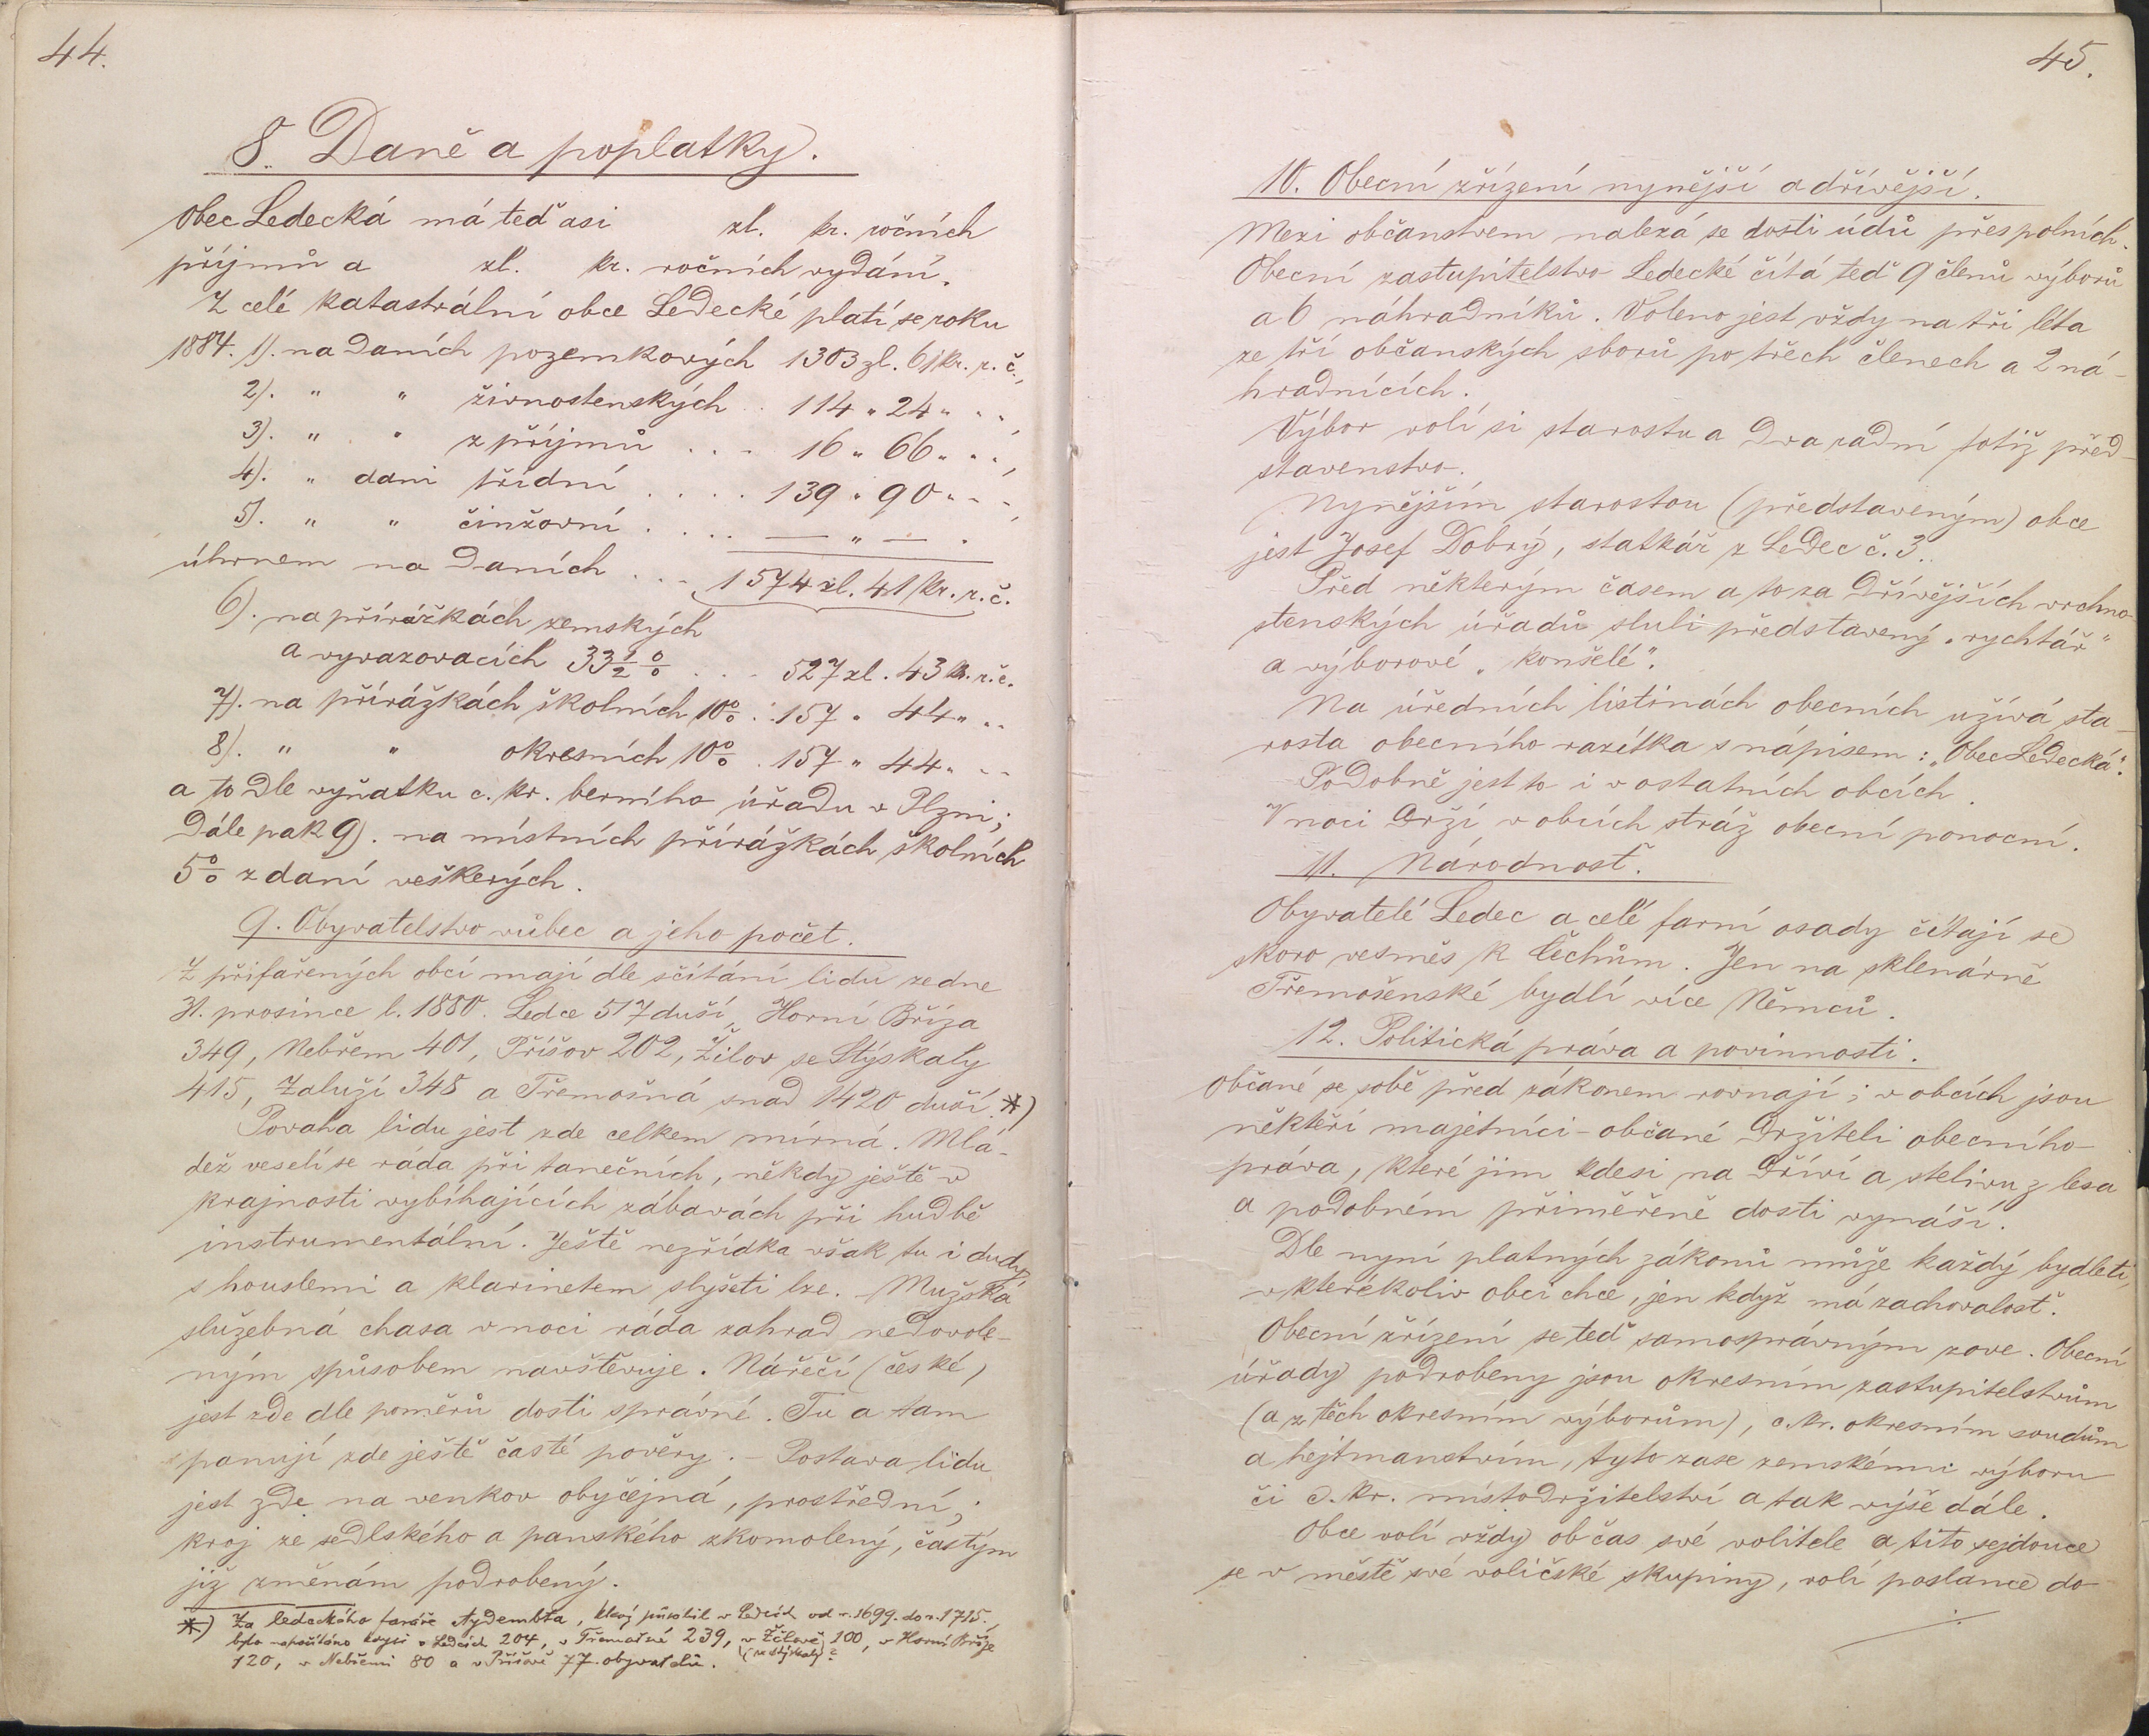 44.
8. Daně a poplatky.
Obec Ledecká má teď asi zl. kr. ročních
příjmů a zl. kr. ročních vydání.
Z celé katastrální obce Ledecké platí se roku
1884. 1). na daních pozemkových 1303 zl. 61 kr. r. č.,
2). " " živnostenských .. 114 " 24 " " "
3). " " z příjmů ... 16 " 66 " " ",
4). " dani třídní .... 139 " 90 " " ",
5). " " činžovní .... — " — .
úhrnem na daních ... 1574 zl. 41 kr. r. č.
6). na přírážkách zemských
a vyvazovacích 33 1/2 % ... 527 zl. 43 kr. r. č.
7). na přírážkách školních 10% .. 157 " 44 " " "
8). " " okresních 10% . 157 " 44 " " "
a to dle výňatku c. kr. berního úřadu v Plzni;
Dále pak 9). na místních přírážkách školních
5% z daní veškerých.
9. Obyvatelstvo vůbec a jeho počet.
Z přifařených obcí mají dle sčítání lidu ze dne
31. prosince l. 1880. Ledce 517 duší, Horní Bříza
349, Nebřem 401, Příšov 202, Žilov se Stýskaly
415, Záluží 348 a Třemošná snad 1420 duší. *)
Povaha lidu jest zde celkem mírná. Mlá-
dež veselí se ráda při tanečních, někdy ještě v
krajnosti vybíhajících zábavách při hudbě
instrumentální. Ještě nezřídka však tu i dudy
s houslemi a klarinetem slyšeti lze. – Mužská
služebná chasa v noci ráda zahrad nedovole-
ným spůsobem navštěvuje. Nářečí (české)
jest zde dle poměrů dosti správné. Tu a tam
panují zde ještě časté pověry. – Postava lidu
jest zde na venkov obyčejná, prostřední;
kroj ze sedlského a panského zkomolený, častým
již změnám podrobený.
*) Za ledeckého faráře , který působil v Ledcích od r. 1699. do r. 1715.,
bylo napočítáno v Ledcích 204, v Třemošné 239, v Žilově 100, v Horní Bříze
(se Stýskaly)?
120, v Nebřemi 80 a v Příšově 77 obyvatelů.
45.
10. Obecní zřízení nynější a dřívější.
Mezi občanstvem nalezá se dosti údů přespolních.
Obecní zastupitelstvo Ledecké čítá teď 9 členů výborů
a 6 náhradníků. Voleno jest vždy na tři léta
ze tří občanských sborů po třech členech a 2 ná-
hradnících.
Výbor volí si starostu a dva radní totiž před-
stavenstvo.
Nynějším starostou (představeným) obce
jest Josef Dobrý, statkář z Ledec č. 3.
Před některým časem a to za dřívějších vrchno-
stenských úřadů sluli představený „rychtář“
a výborové „konšelé“.
Na úředních listinách obecních užívá sta-
rosta obecního razítka s nápisem: „Obec Ledecká“.
Podobně jest to i v ostatních obcích.
V noci drží v obcích stráž obecní ponocní.
11. Národnosť.
Obyvatelé Ledec a celé farní osady čítají se
skoro vesměs k Čechům. Jen na sklenárně
Třemošenské bydlí více Němců.
12. Politická práva a povinnosti.
Občané se sobě před zákonem rovnají; v obcích jsou
někteří majetníci-občané držiteli obecního
práva, které jim kdesi na dříví a stelivu z lesa
a podobném přiměřeně dosti vynáší.
Dle nyní platných zákonů může každý bydleti,
v kterékoliv obci chce, jen když má zachovalosť.
Obecní zřízení se teď samosprávným zove. Obecní
úřady podrobeny jsou okresním zastupitelstvům
(a z těch okresním výborům), c. kr. okresním soudům
a hejtmanstvím, tyto zase zemskému výboru
či c. kr. místodržitelství a tak výše dále.
Obce volí vždy občas své volitele a tito sejdouce
se v městě své voličské skupiny, volí poslance do
./.